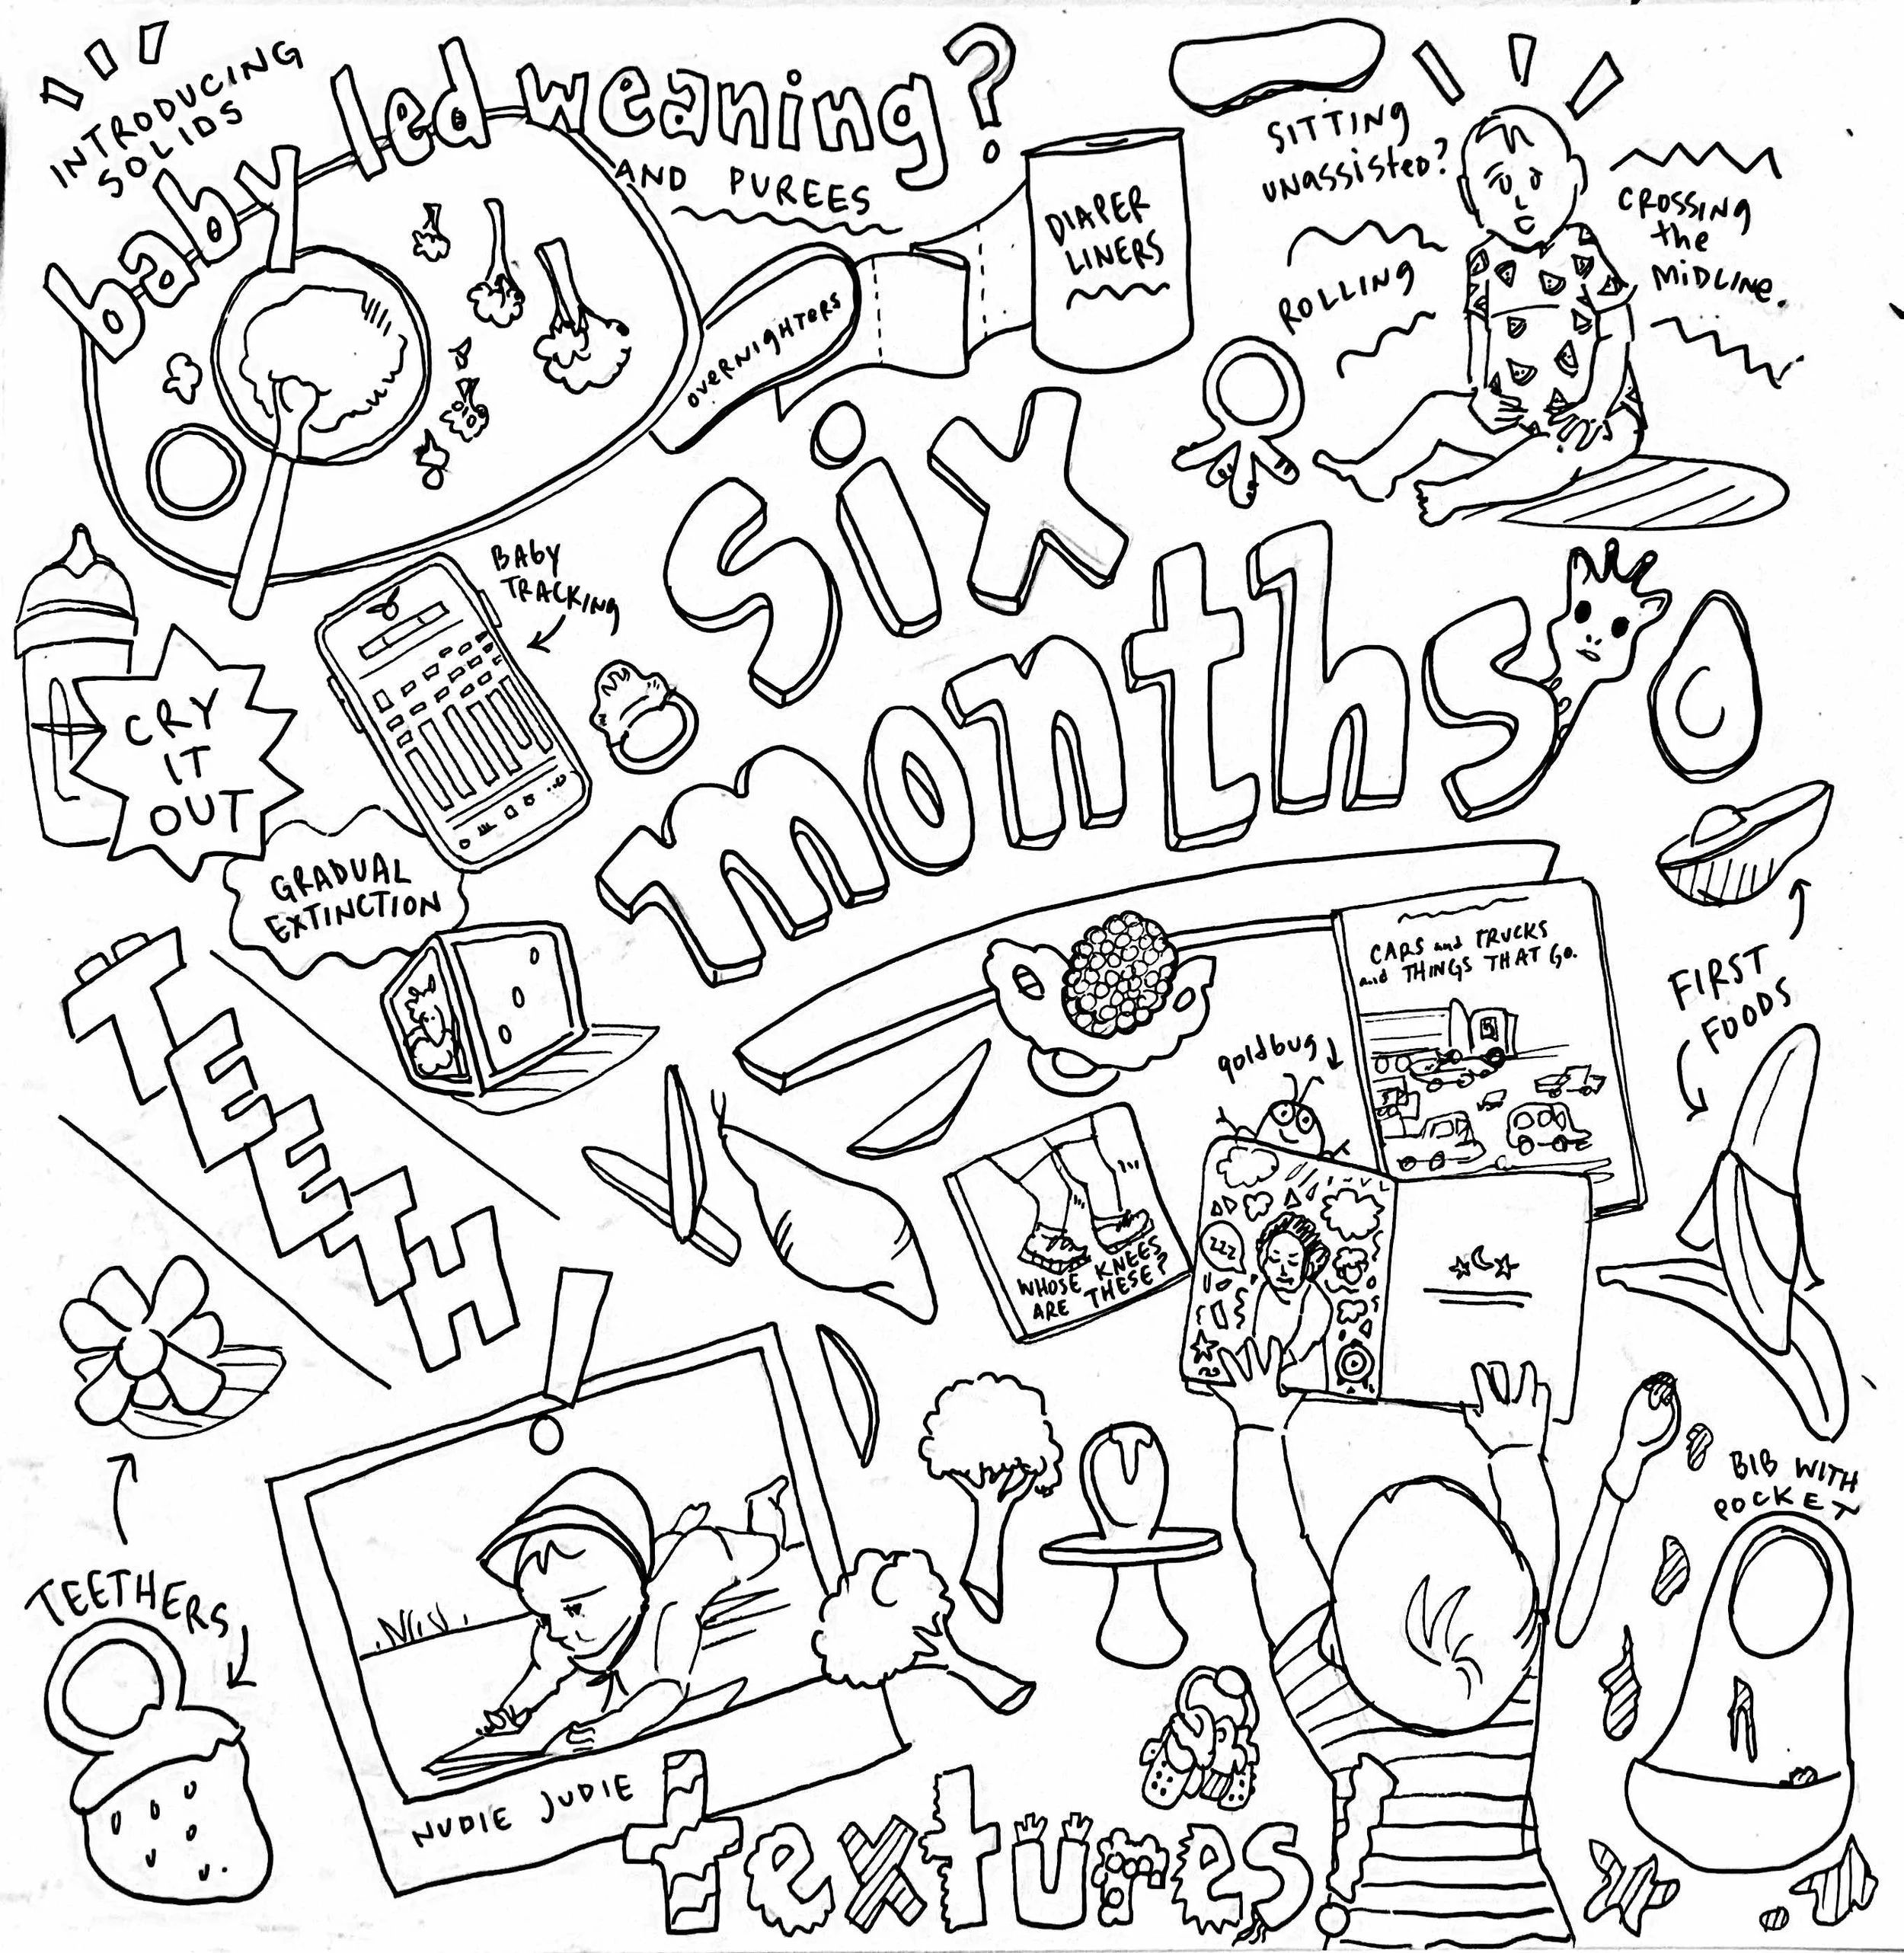 INTRODUCING
SOLIDS
baby led weaning?
AND PUREES
DIAPER
LINERS
OVERNIGHTERS
SITTING
UNASSISTED?
ROLLING
CROSSING
the
MIDLINE.
six
months
BABY
TRACKING
CRY
IT
OUT
GRADUAL
EXTINCTION
TEETH
CARS and TRUCKS
and THINGS THAT GO.
goldbug
FIRST
FOODS
WHOSE KNEES
ARE THESE?
ZZZ
TEETHERS
BIB WITH
POCKET
NUDIE JUDIE
textures